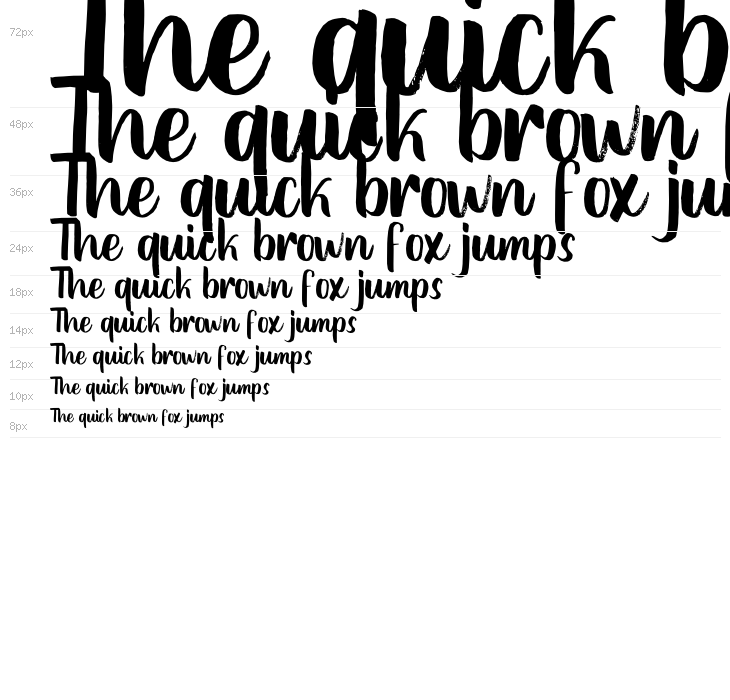 72px The quick b
48px The quick brown f
36px The quick brown fox ju
24px The quick brown fox jumps
18px The quick brown fox jumps
14px The quick brown fox jumps
12px The quick brown fox jumps
10px The quick brown fox jumps
8px The quick brown fox jumps